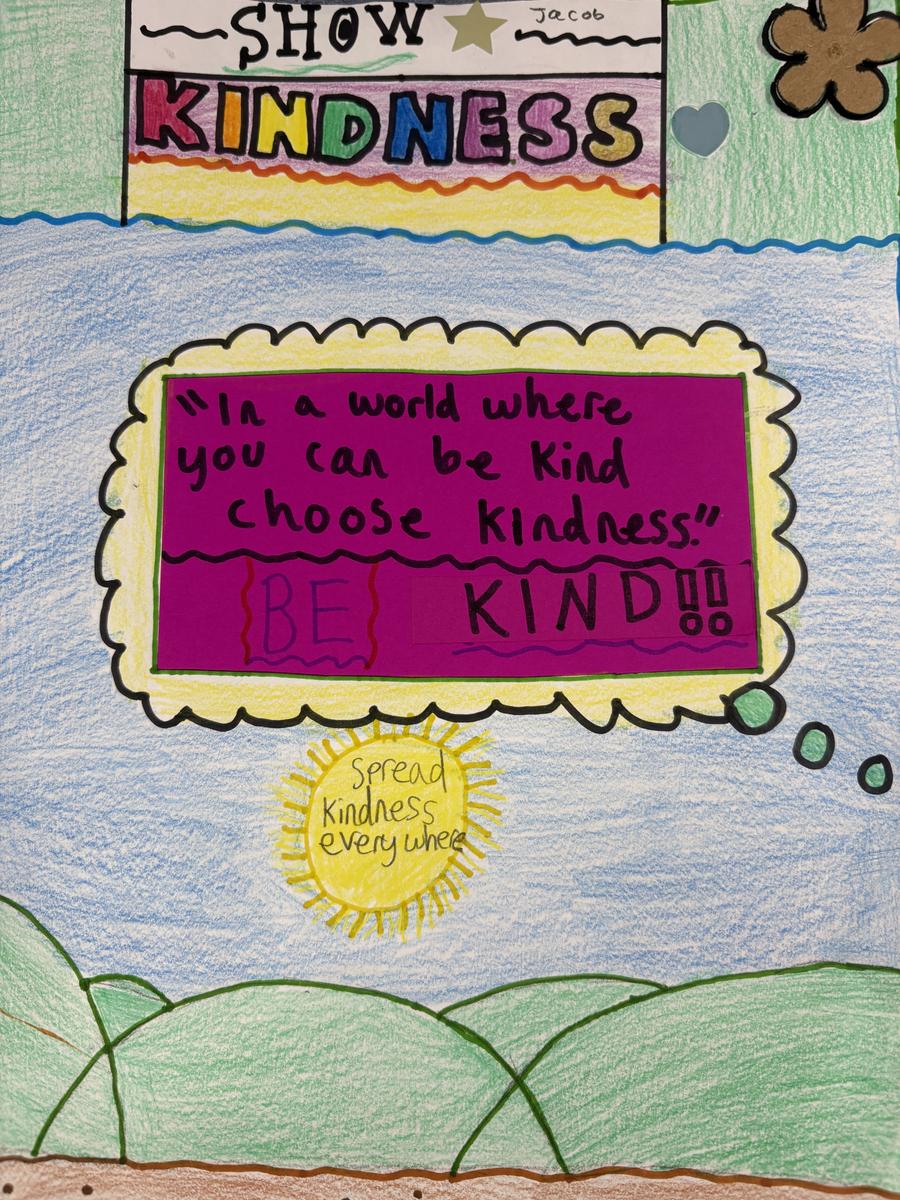 SHOW
Jacob
KINDNESS
"In a world where
you can be kind
choose kindness."
BE KIND!!
Spread
kindness
everywhere